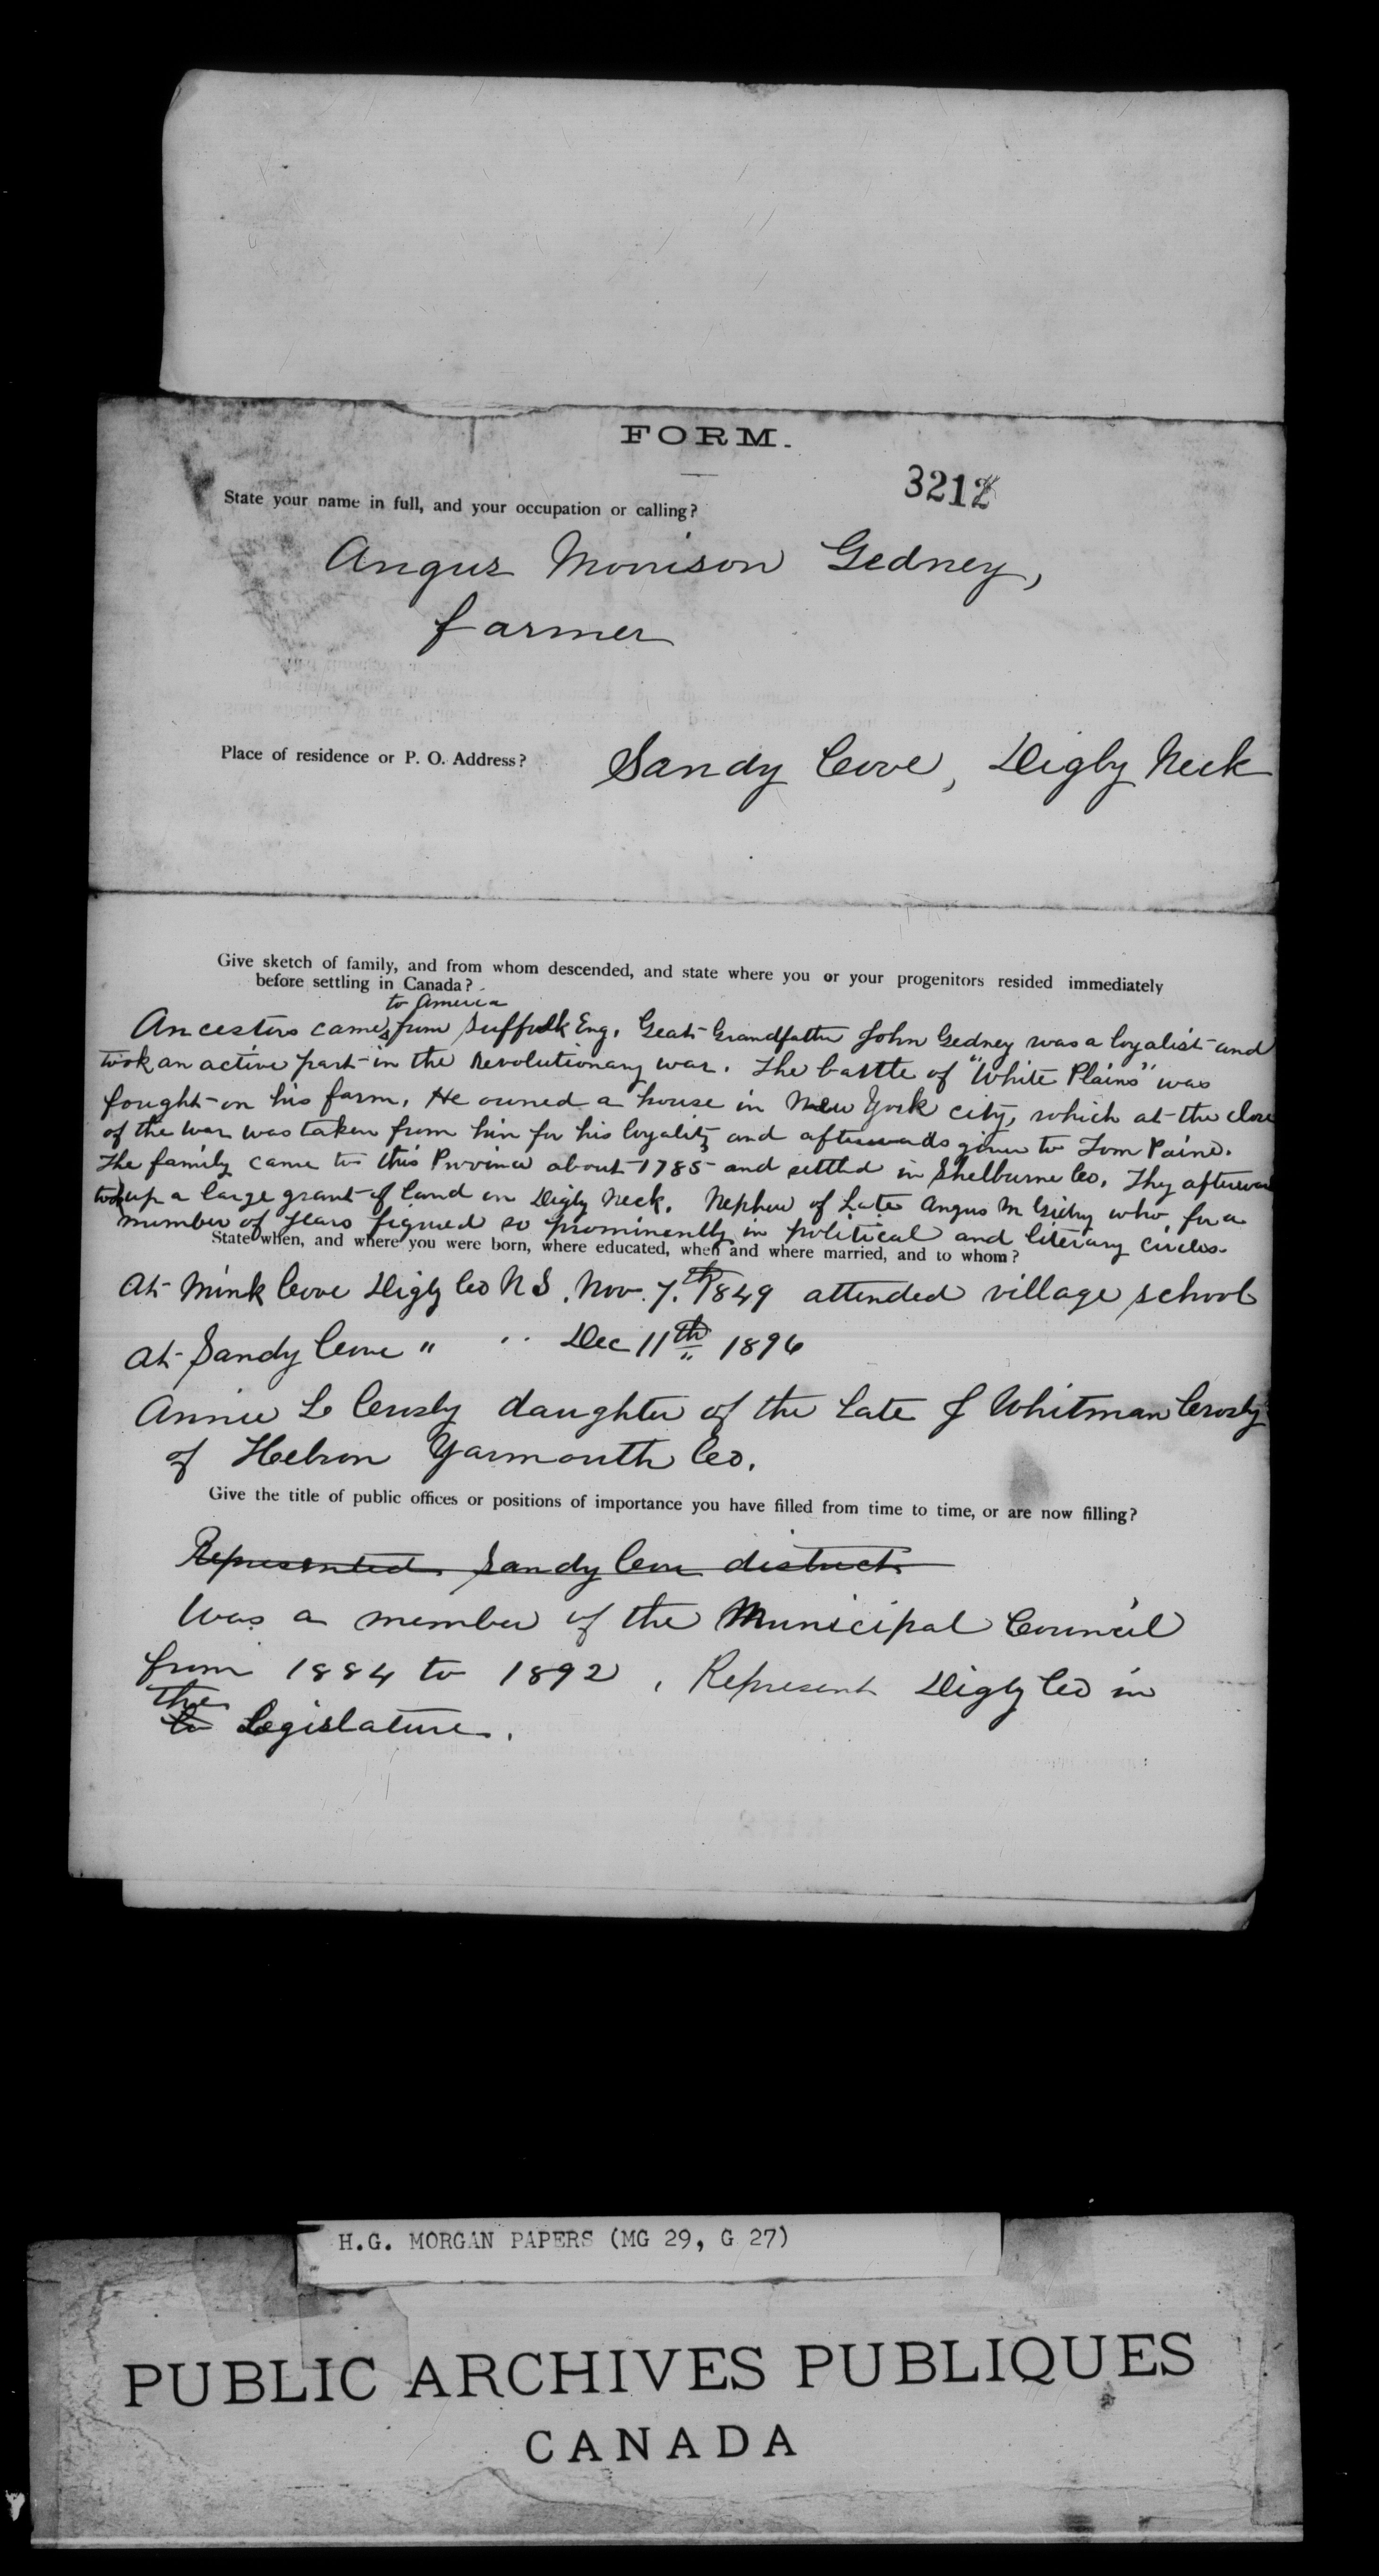 FORM.
3212
State your name in full, and your occupation or calling?
Angus Morrison Gedney,
farmer
Place of residence or P. O. Address?
Sandy Cove, Digby Neck
Give sketch of family, and from whom descended, and state where you or your progenitors resided immediately
before settling in Canada?
to America
Ancestors came from Suffolk Eng. Great Grandfather John Gedney was a loyalist and
took an active part in the Revolutionary war. The battle of "White Plains" was
fought on his farm. He owned a house in New York city, which at the close
of the war was taken from him for his loyality and afterwards given to Tom Paine.
The family came to this Province about 1785 and settled in Shelburne Co. They afterward
took up a large grant of land on Digby Neck. Nephew of Late Angus M Gidny who, for a
number of years figured so prominently in political and literary circles.
State when, and where you were born, where educated, when and where married, and to whom?
At Mink Cove Digby Co N S. Nov. 7.th 1849 attended village school
At Sandy Cove " " Dec 11th 1896
Annie L Crosby daughter of the late J Whitman Crosby
of Hebron Yarmouth Co.
Give the title of public offices or positions of importance you have filled from time to time, or are now filling?
Represented Sandy Cove district
Was a member of the Municipal Council
from 1884 to 1892, Represent Digby Co in
the
Legislature.
H.G. MORGAN PAPERS (MG 29, G 27)
PUBLIC ARCHIVES PUBLIQUES
CANADA